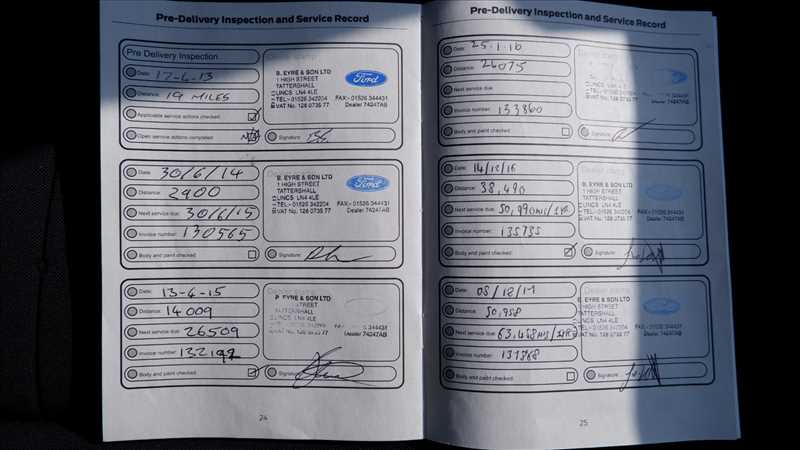 Pre-Delivery Inspection and Service Record
Pre Delivery Inspection
Date: 17-4-13
Distance: 19 MILES
Applicable service actions checked:
Open service actions completed: N/A
B. EYRE & SON LTD
1 HIGH STREET
TATTERSHALL
LINCS LN4 4LE
TEL:- 01526 342204 FAX:- 01526 344431
VAT No. 126 0735 77 Dealer 74247AB
Ford
Signature:
Date: 30/6/14
Distance: 2900
Next service due: 30/6/15
Invoice number: 130565
Body and paint checked:
Dealer stamp
B. EYRE & SON LTD
1 HIGH STREET
TATTERSHALL
LINCS LN4 4LE
TEL:- 01526 342204 FAX:- 01526 344431
VAT No. 126 0735 77 Dealer 74247AB
Ford
Signature:
Date: 13-4-15
Distance: 14009
Next service due: 26509
Invoice number:
Body and paint checked:
Dealer stamp
EYRE & SON LTD
STREET
LINCS LN4 4LE
344431
VAT No. 126 0735 77 Dealer 74247AB
Signature:
24
Pre-Delivery Inspection and Service Record
Date: 25-1-16
Distance: 26075
Next service due:
Invoice number: 133860
Body and paint checked:
Dealer 74247AB
Signature:
Date: 14/12/16
Distance: 38,490
Next service due:
Invoice number: 135735
Body and paint checked:
B. EYRE & SON LTD
1 HIGH STREET
TATTERSHALL
LINCS LN4 4LE
TEL:- 01526 342204
344431
VAT No. 126 0735 77 Dealer 74247AB
Signature:
Date: 05/12/17
Distance: 50,958
Next service due:
Invoice number:
Body and paint checked:
B. EYRE & SON LTD
1 HIGH STREET
TATTERSHALL
LINCS LN4 4LE
TEL:- 01526 342204
344431
VAT No. 126 0735 77 Dealer 74247AB
Signature:
25